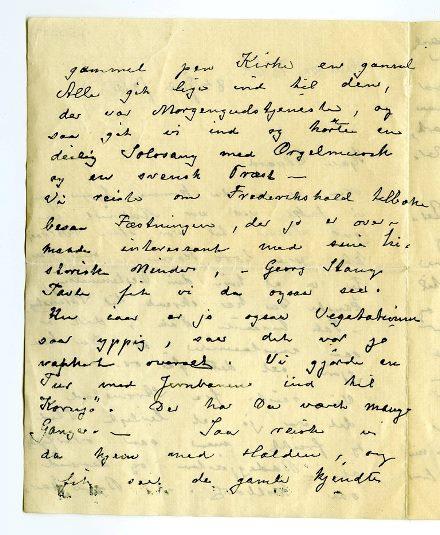 gammel pen Kirke en gammel
Alle gik lige ind til den,
der var Morgengudstjeneste, og
saa gik vi ind og hørte en
deilig Solosang med Orgelmusik
og en svensk Præst —
Vi reiste om Frederikshald tilbake
besaa Fæstningen, der jo er over-
maade interessant med sine hi-
storiske Minder, – Georg Stangs
fik vi da ogsaa see.
Nu saa er jo ogsaa Vegetationen
saa yppig, saa det var jo
vakkert overalt. Vi gjorde en
Tur med Jernbanen ind til
Kornsjö. Der har Du været mange
Ganger. — Saa reiste vi
da hjem med Halden, og
fik see de gamle kjendte